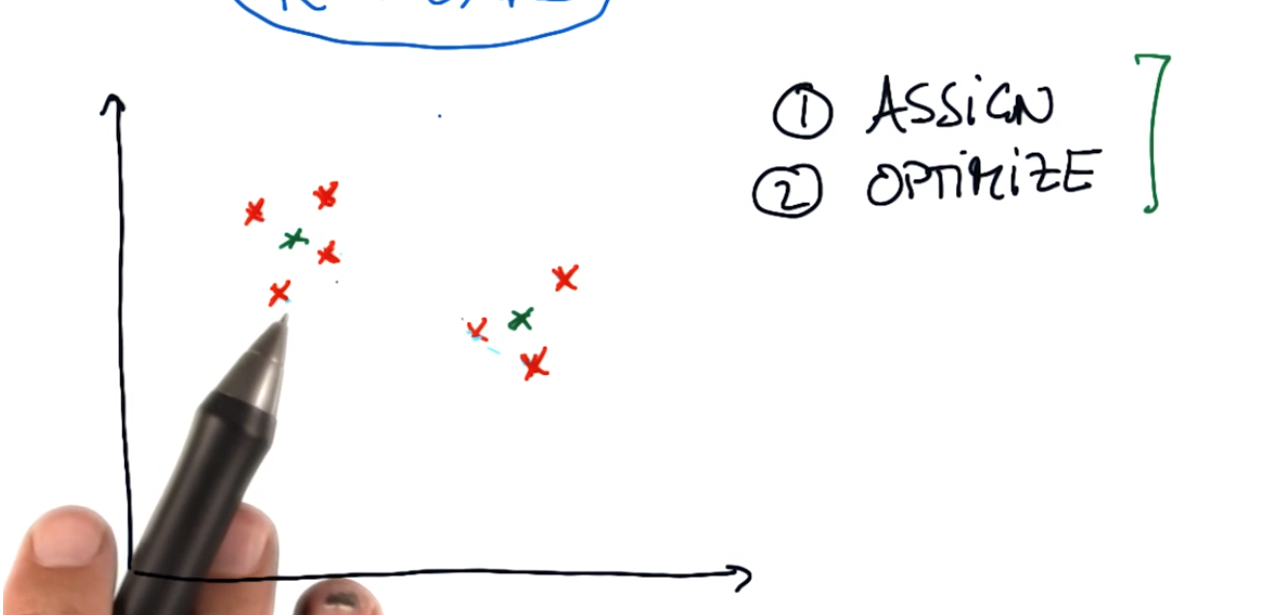 ① ASSIGN
② OPTIMIZE